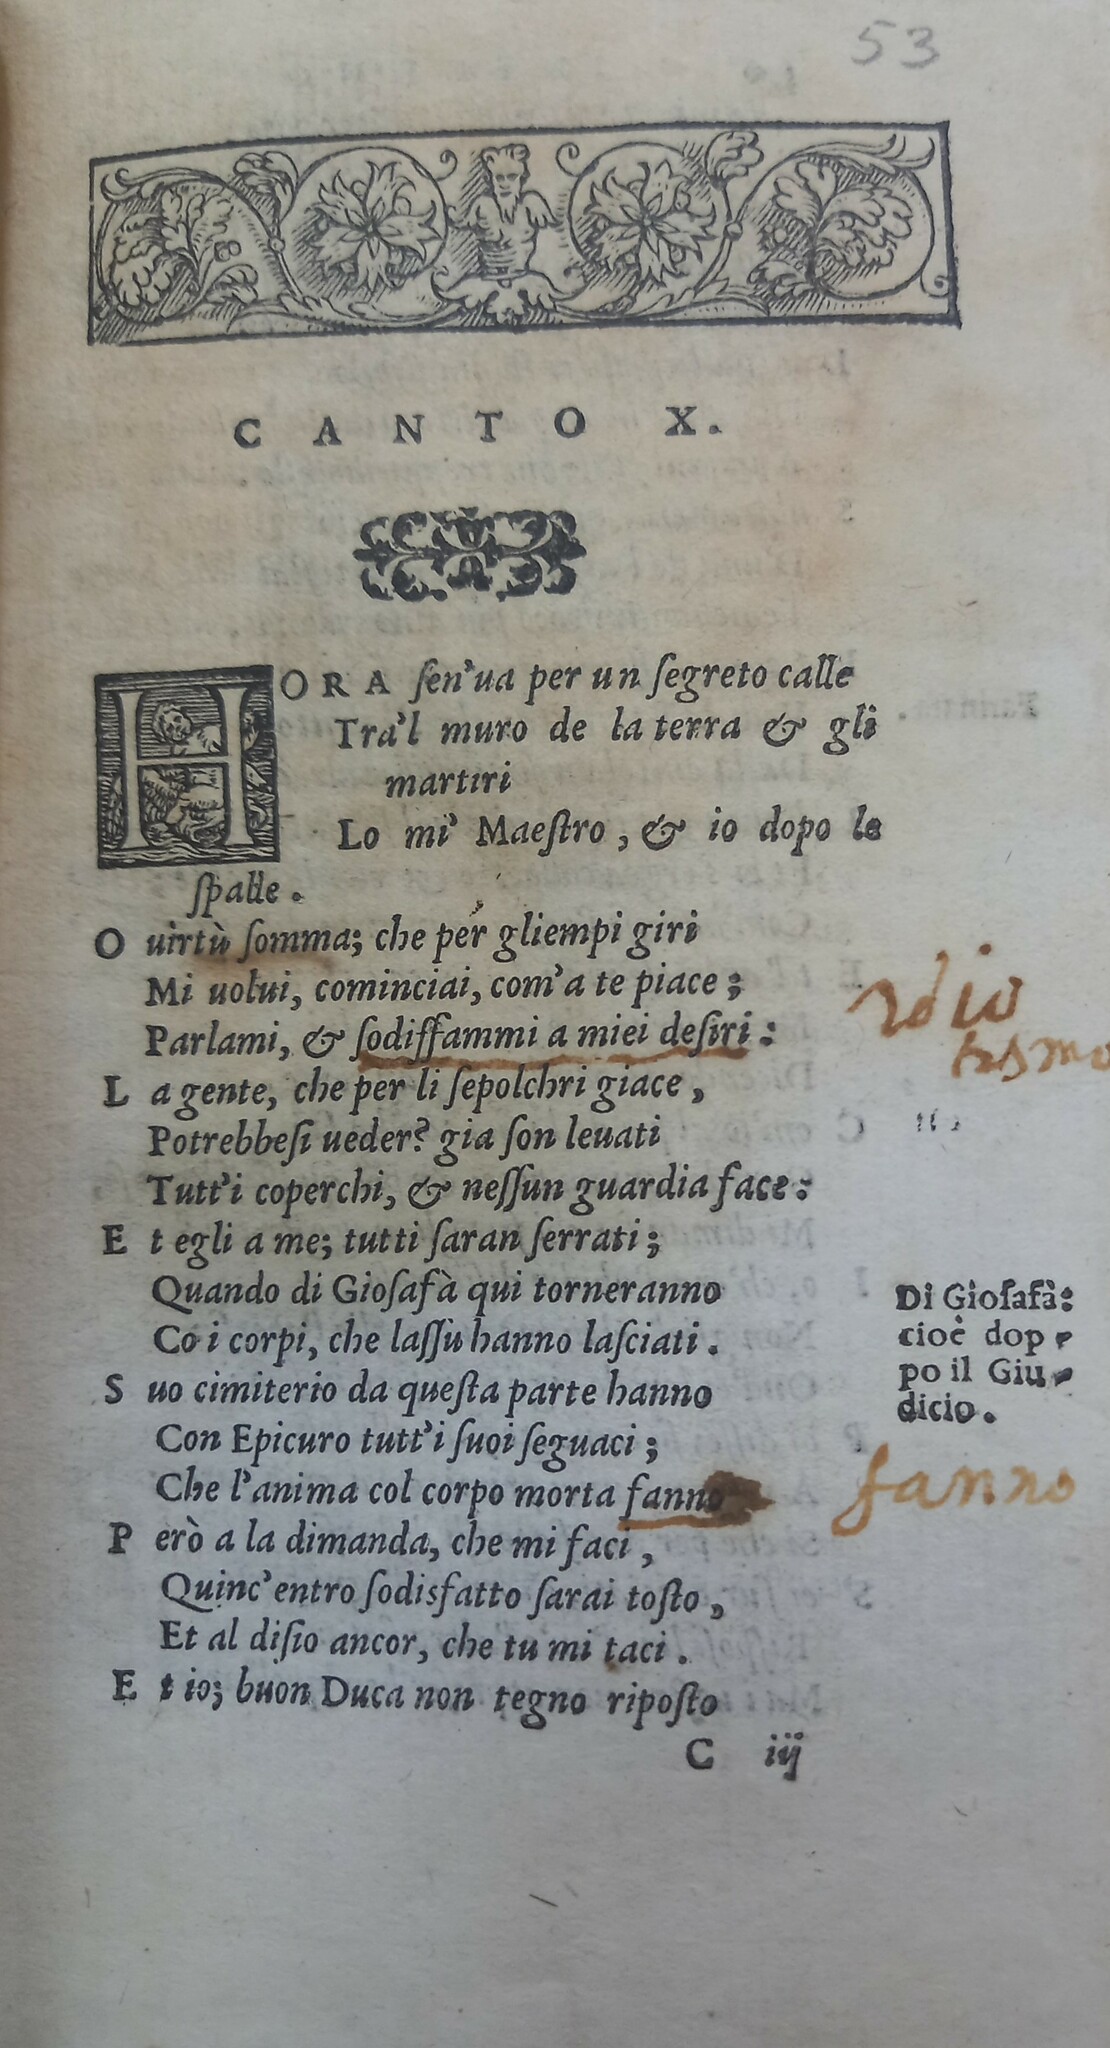 53
CANTO X.
HORA ſen'ua per un ſegreto calle
Tra'l muro de la terra & gli
martiri
Lo mi' Maeſtro, & io dopo le
ſpalle.
O uirtù ſomma; che per gliempi giri
Mi uolui, cominciai, com'a te piace;
Parlami, & ſodiſfammi a miei deſiri:
L a gente, che per li ſepolchri giace,
Potrebbeſi ueder? gia ſon leuati
Tutt'i coperchi, & neſſun guardia face:
E t egli a me; tutti ſaran ſerrati;
Quando di Gioſafà qui torneranno
Co i corpi, che laſſù hanno laſciati.
S uo cimiterio da queſta parte hanno
Con Epicuro tutt'i ſuoi ſeguaci;
Che l'anima col corpo morta fanno
P erò a la dimanda, che mi faci,
Quinc'entro ſodisfatto ſarai toſto,
Et al diſio ancor, che tu mi taci.
E t io; buon Duca non tegno ripoſto
C iij
Di Gioſafà:
cioè dop-
po il Giu-
dicio.
fanno